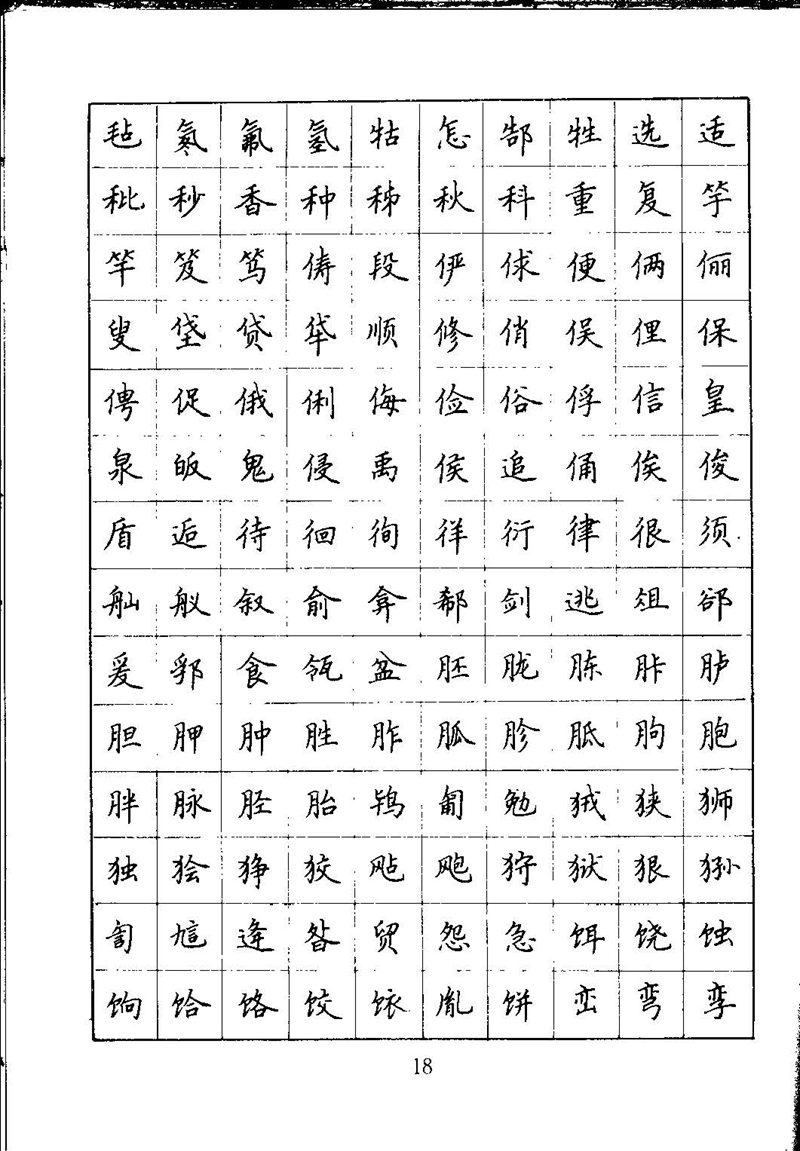 毡 氡 氟 氢 牯 怎 郜 牲 选 适
秕 秒 香 种 秭 秋 科 重 复 竽
竿 笈 笃 俦 段 俨 俅 便 俩 俪
叟 垡 贷 牮 顺 修 俏 俣 俚 保
俜 促 俄 俐 侮 俭 俗 俘 信 皇
泉 皈 鬼 侵 禹 侯 追 俑 俟 俊
盾 逅 待 徊 徇 徉 衍 律 很 须
舢 舣 叙 俞 弇 郗 剑 逃 俎 郤
爰 郛 食 瓴 盆 胚 胧 胨 胩 胪
胆 胛 胂 胜 胙 胍 胗 胝 朐 胞
胖 脉 胫 胎 鸨 匍 勉 狨 狭 狮
独 狯 狰 狡 飐 飑 狩 狱 狠 狲
訇 訄 逄 昝 贸 怨 急 饵 饶 蚀
饷 饸 饹 饺 饻 胤 饼 峦 弯 孪
18